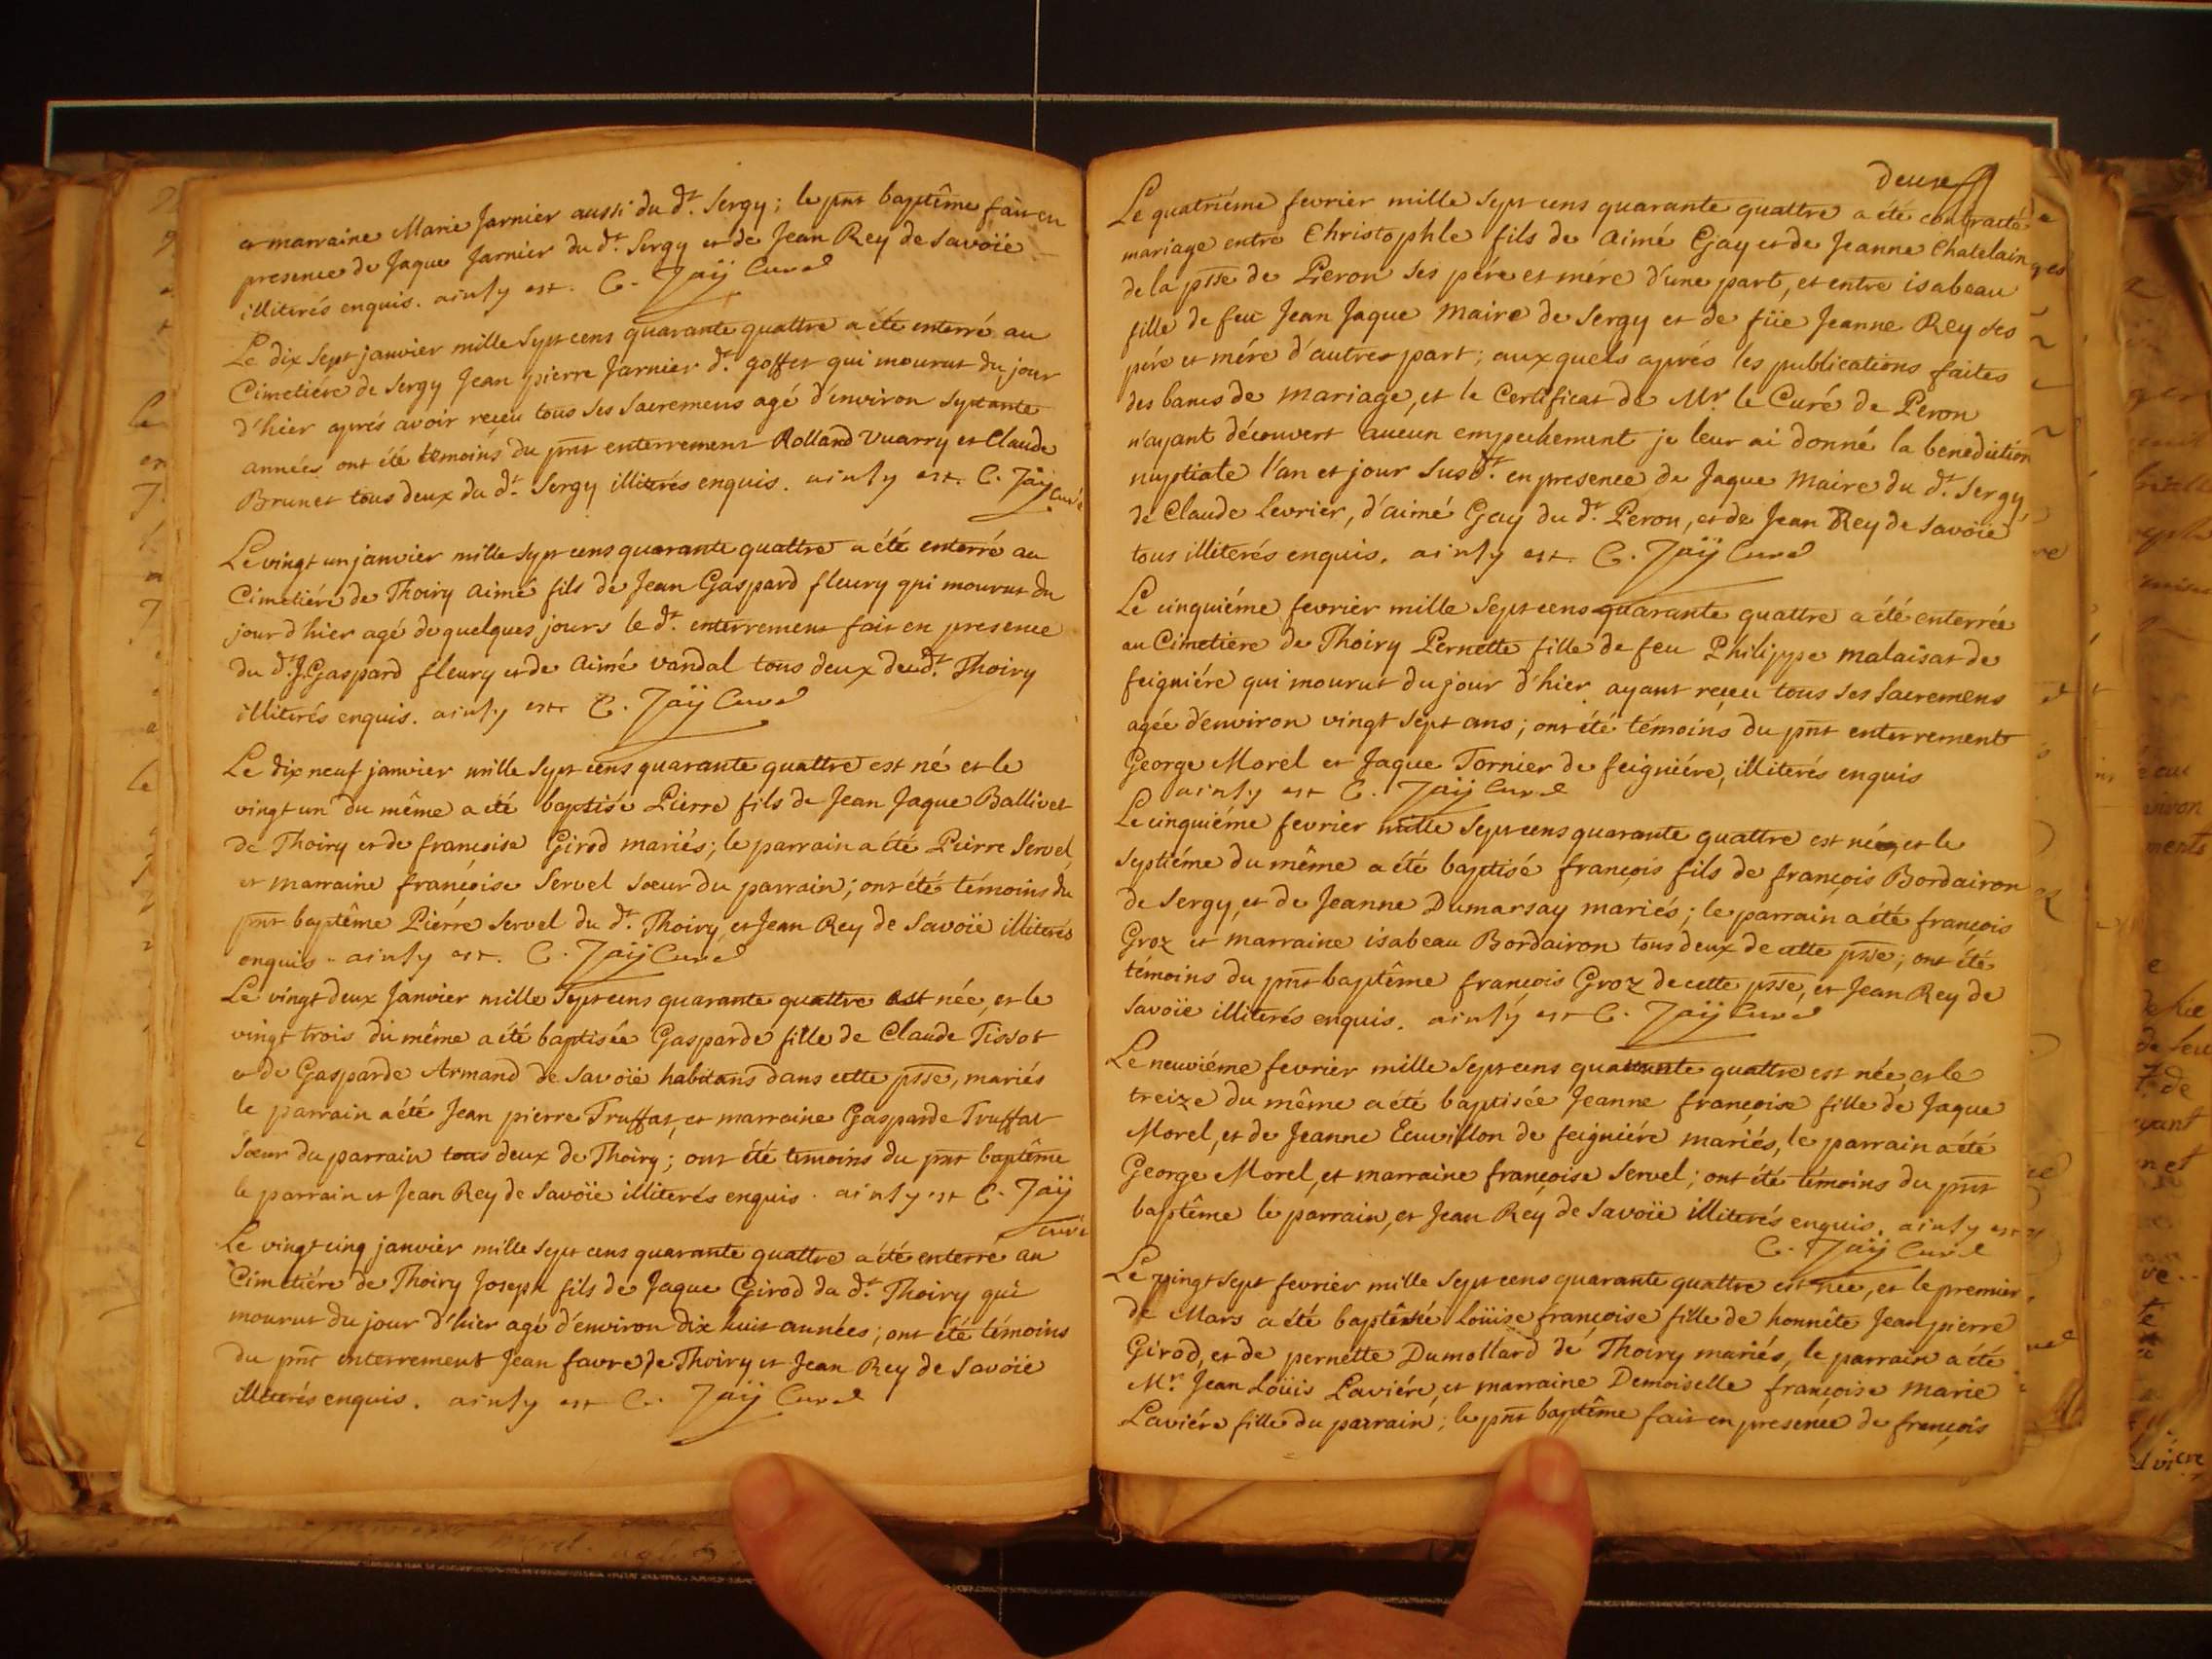 et marraine Marie Jarnier aussi du dt. Sergy; le pnt baptême fait en
presence de Jaque Jarnier du dt. Sergy et de Jean Rey de Savoïe
illiterés enquis. ainsy est. C. Jaÿ Curé
Le dix sept janvier mille sept cens quarante quattre a été enterré au
Cimetiére de Sergy Jean pierre Jarnier dt. goffet qui mourut du jour
d'hier aprés avoir reçeu tous ses sacremens agé d'environ septante
années ont été témoins du pnt enterrement Rolland Vuarry et Claude
Brunet tous deux du dt. Sergy illiterés enquis. ainsy est. C. Jaÿ Curé
Le vingt un janvier mille sept cens quarante quattre a été enterré au
Cimetiére de Thoiry Aimé fils de Jean Gaspard fleury qui mourut du
jour d'hier agé de quelques jours le dt. enterrement fait en presence
du dt. J. Gaspard fleury et de Aimé Vandal tous deux du dt. Thoiry
illiterés enquis. ainsy est C. Jaÿ Curé
Le dix neuf janvier mille sept cens quarante quattre est né et le
vingt un du même a été baptisé Pierre fils de Jean Jaque Ballivet
de Thoiry et de françoise Girod mariés; le parrain a été Pierre Servel,
et marraine françoise Servel sœur du parrain; ont été témoins du
pnt baptême Pierre Servel du dt. Thoiry, et Jean Rey de Savoïe illiterés
enquis. ainsy est. C. Jaÿ Curé
Le vingt deux Janvier mille sept cens quarante quattre est née, et le
vingt trois du même a été baptisée Gasparde fille de Claude Tissot
et de Gasparde Armand de Savoïe habitans dans cette psse, mariés
le parrain a été Jean pierre Truffat, et marraine Gasparde Truffat
sœur du parrain tous deux de Thoiry; ont été temoins du pnt baptême
le parrain et Jean Rey de Savoïe illiterés enquis. ainsy est C. Jaÿ
Curé
Le vingt cinq janvier mille sept cens quarante quattre a été enterré au
Cimetiére de Thoiry Joseph fils de Jaque Girod du dt. Thoiry qui
mourut du jour d'hier agé d'environ dix huit années; ont été témoins
du pnt enterrement Jean favre de Thoiry et Jean Rey de Savoïe
illiterés enquis. ainsy est C. Jaÿ Curé
deux
Le quatriéme fevrier mille sept cens quarante quattre a été contracté
mariage entre Christophle fils de Aimé Gay et de Jeanne Chatelain
de la psse de Peron ses pére et mére d'une part, et entre isabeau
fille de feu Jean Jaque Maire de Sergy et de füe Jeanne Rey ses
pére et mére d'autre part; aux quels aprés les publications faites
des bancs de mariage, et le Certificat de Mr. le Curé de Peron
n'ayant découvert aucun empechement je leur ai donné la benediction
nuptiale l'an et jour susdt. en presence de Jaque Maire du dt. Sergy,
de Claude Levrier, d'aimé Gay du dt. Peron, et de Jean Rey de Savoïe
tous illiterés enquis. ainsy est. C. Jaÿ Curé
Le cinquiéme fevrier mille sept cens quarante quattre a été enterrée
au Cimetiére de Thoiry Pernette fille de feu Philippe malaisat de
feigniére qui mourut du jour d'hier ayant reçeu tous ses sacremens
agée d'environ vingt sept ans; ont été témoins du pnt enterrement
George Morel et Jaque Tornier de feigniére, illiterés enquis
ainsy est C. Jaÿ Curé
Le cinquiéme fevrier mille sept cens quarante quattre est né et le
septiéme du même a été baptisé françois fils de françois Bordairon
de Sergy, et de Jeanne Dumarsay mariés; le parrain a été françois
Groz et marraine isabeau Bordairon tous deux de cette psse; ont été
témoins du pnt baptême françois Groz de cette psse, et Jean Rey de
Savoïe illiterés enquis. ainsy est C. Jaÿ Curé
Le neuviéme fevrier mille sept cens quarante quattre est née et le
treize du même a été baptisée Jeanne françoise fille de Jaque
Morel, et de Jeanne Ecuvillon de feigniére mariés, le parrain a été
George Morel, et marraine françoise Servel; ont été témoins du pnt
baptême le parrain, et Jean Rey de Savoïe illiterés enquis. ainsy est
C. Jaÿ Curé
Le vingt sept fevrier mille sept cens quarante quattre est née, et le premier
de Mars a été baptêsé Loüise françoise fille de honnête Jean pierre
Girod, et de pernette Dumollard de Thoiry mariés, le parrain a été
Mr. Jean Loüis Laviére, et marraine Demoiselle françoise Marie
Laviére fille du parrain; le pnt baptême fait en presence de françois